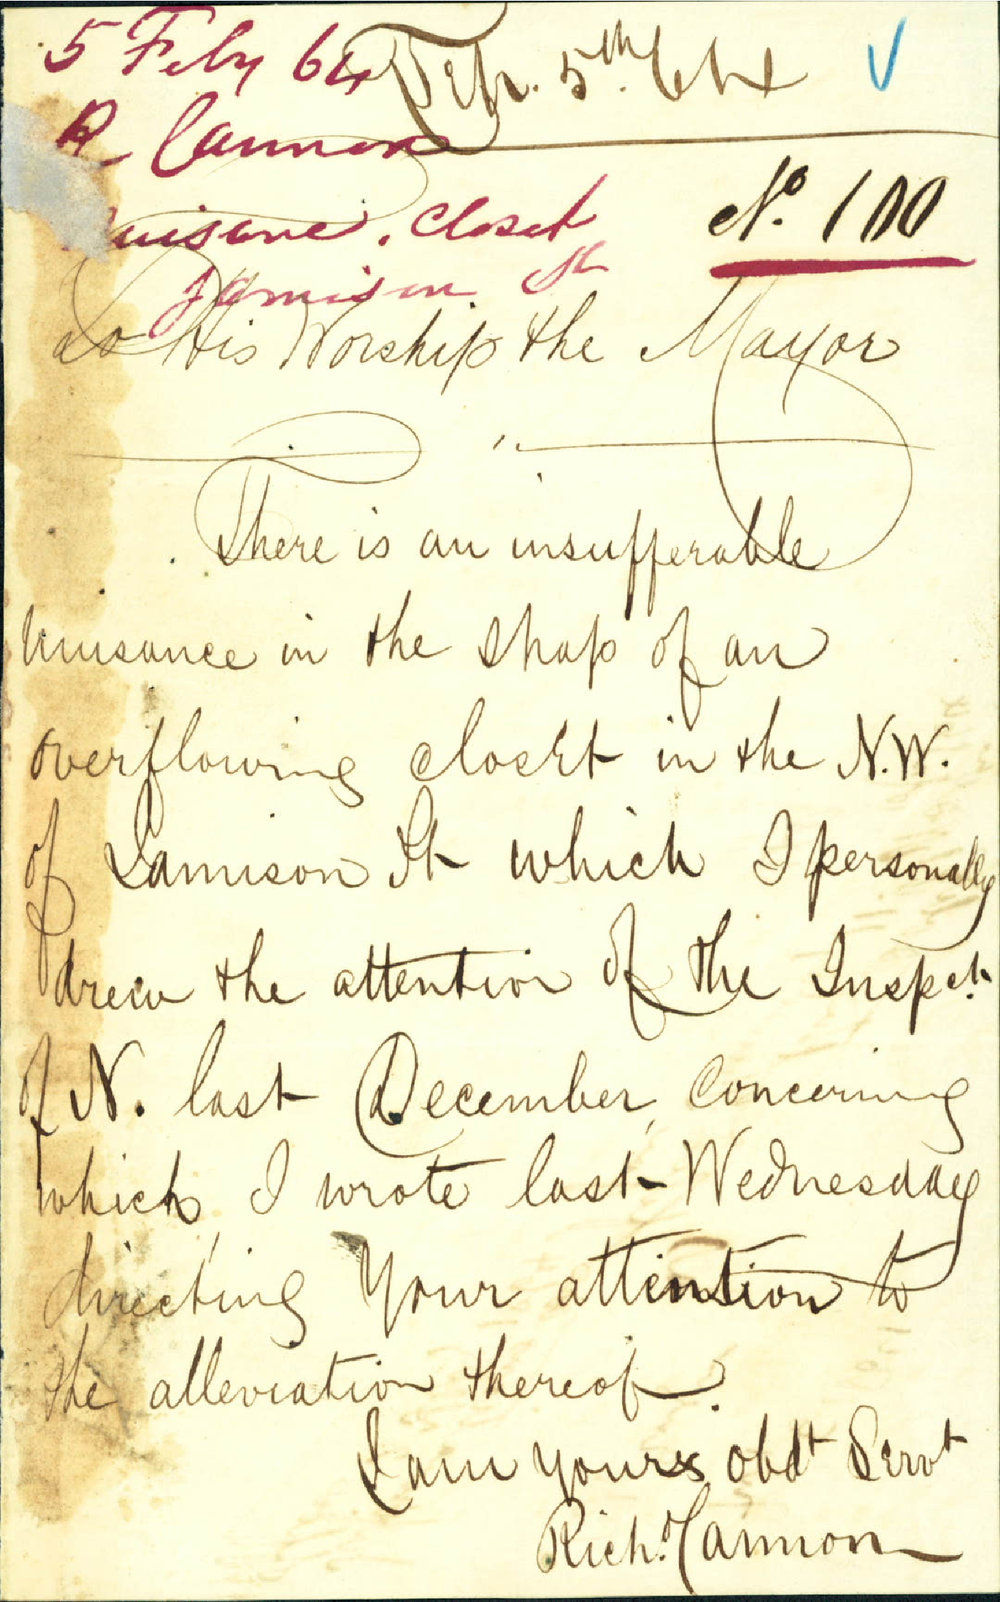 5 Feby 64
Feb. 5th. 64
R Cannon
No. 100
Nuisance. Closet
Jamison St
To His Worship the Mayor
There is an insufferable
nuisance in the shap of an
overflowing closet in the N.W.
of Jamison St which I personally
drew the attention of the Inspct.
of N. last December, concerning
which I wrote last Wednesday
directing Your attention to
the alleviation thereof.
I am yours obdt Servt
Richd. Cannon